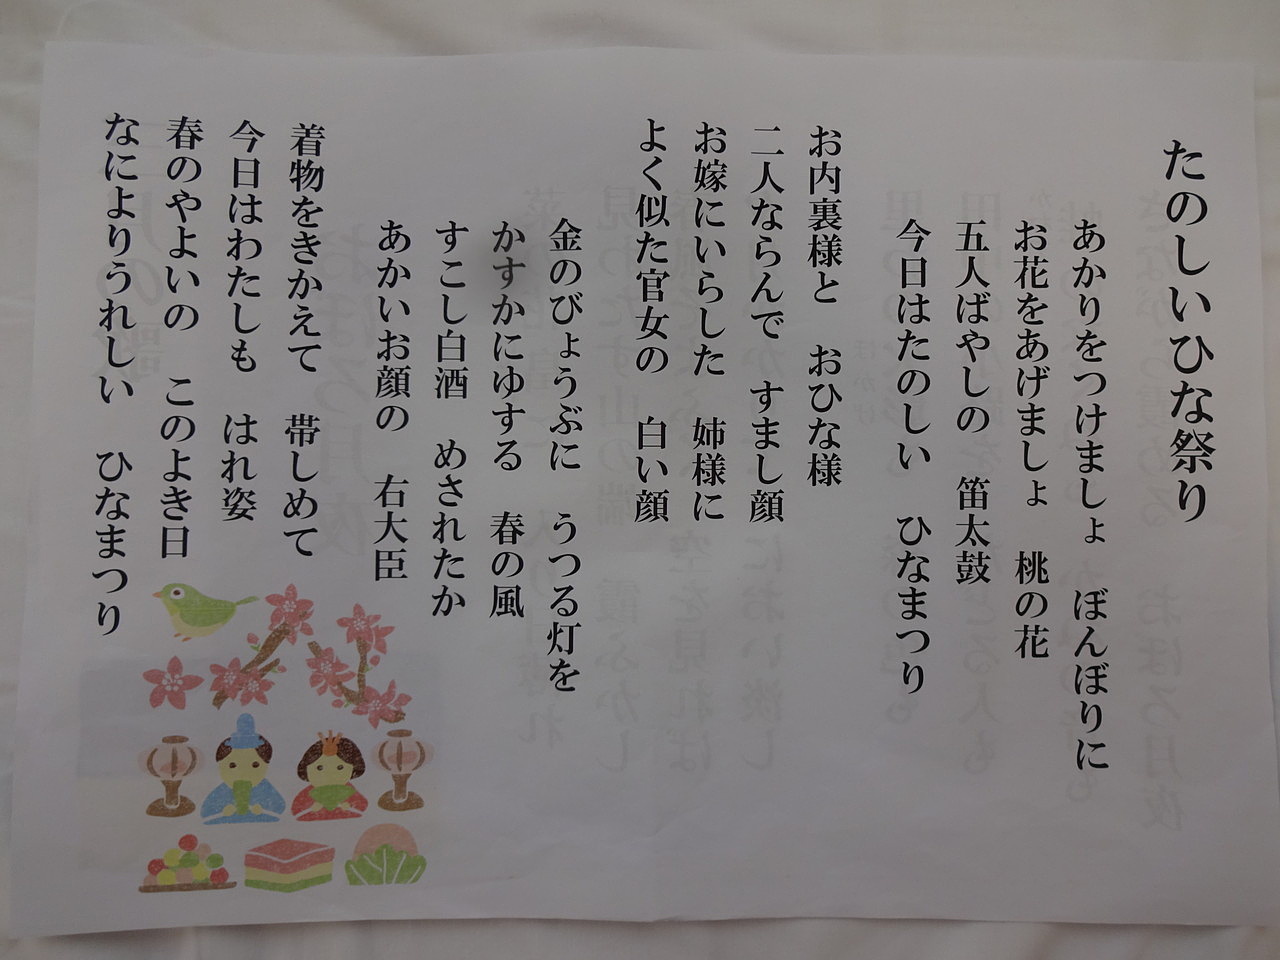 たのしいひな祭り
あかりをつけましょ　ぼんぼりに
お花をあげましょ　桃の花
五人ばやしの　笛太鼓
今日はたのしい　ひなまつり
お内裏様と　おひな様
二人ならんで　すまし顔
お嫁にいらした　姉様に
よく似た官女の　白い顔
金のびょうぶに　うつる灯を
かすかにゆする　春の風
すこし白酒　めされたか
あかいお顔の　右大臣
着物をきかえて　帯しめて
今日はわたしも　はれ姿
春のやよいの　このよき日
なによりうれしい　ひなまつり